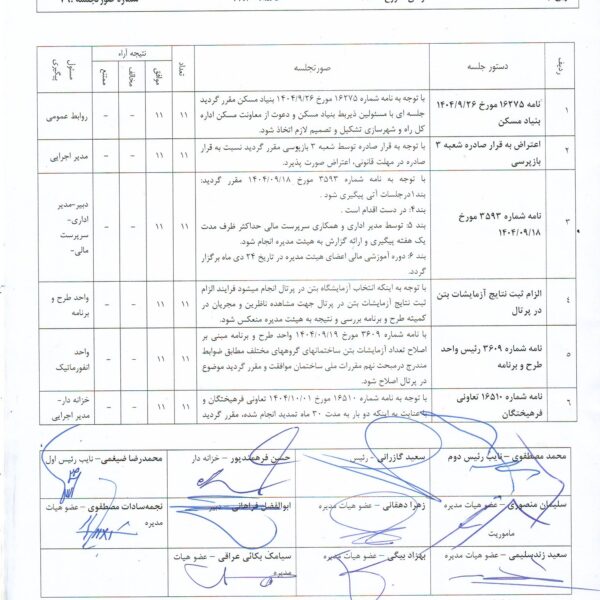 ردیف
دستور جلسه
صورتجلسه
تعداد
نتیجه آراء
موافق
مخالف
ممتنع
مسئول پیگیری
۱
نامه ۱۶۲۷۵ مورخ ۱۴۰۴/۹/۲۶
بنیاد مسکن
با توجه به نامه شماره ۱۶۲۷۵ مورخ ۱۴۰۴/۹/۲۶ بنیاد مسکن مقرر گردید
جلسه ای با مسئولین ذیربط بنیاد مسکن و دعوت از معاونت مسکن اداره
کل راه و شهرسازی تشکیل و تصمیم لازم اتخاذ شود.
۱۱
۱۱
–
–
روابط عمومی
۲
اعتراض به قرار صادره شعبه ۳
بازپرسی
با توجه به قرار صادره توسط شعبه ۳ بازپرسی مقرر گردید نسبت به قرار
صادره در مهلت قانونی، اعتراض صورت پذیرد.
۱۱
۱۱
–
–
مدیر اجرایی
۳
نامه شماره ۳۵۹۳ مورخ
۱۴۰۴/۰۹/۱۸
با توجه به نامه شماره ۳۵۹۳ مورخ ۱۴۰۴/۰۹/۱۸ مقرر گردید:
بند۱:درجلسات آتی پیگیری شود .
بند۴: در دست اقدام است .
بند ۵: توسط مدیر اداری و همکاری سرپرست مالی حداکثر ظرف مدت
یک هفته پیگیری و ارائه گزارش به هیئت مدیره انجام شود.
بند ۶: دوره آموزشی مالی اعضای هیئت مدیره در تاریخ ۲۴ دی ماه برگزار
گردد.
۱۱
۱۱
–
–
دبیر-مدیر
اداری-
سرپرست
مالی-
۴
الزام ثبت نتایج آزمایشات بتن
در پرتال
با توجه به اینکه انتخاب آزمایشگاه بتن در پرتال انجام میشود فرایند الزام
ثبت نتایج آزمایشات بتن در پرتال جهت مشاهده ناظرین و مجریان در
کمیته طرح و برنامه بررسی و نتیجه به هیئت مدیره منعکس شود.
۱۱
۱۱
–
–
واحد طرح و
برنامه
۵
نامه شماره ۳۶۰۹ رئیس واحد
طرح و برنامه
با نامه شماره ۳۶۰۹ مورخ ۱۴۰۴/۰۹/۱۹ واحد طرح و برنامه مبنی بر
اصلاح تعداد آزمایشات بتن ساختمانهای گروههای مختلف مطابق ضوابط
مندرج درمبحث نهم مقررات ملی ساختمان موافقت و مقرر گردید موضوع
در پرتال اصلاح شود.
۱۱
۱۱
–
–
واحد
انفورماتیک
۶
نامه شماره ۱۶۵۱۰ تعاونی
فرهیختگان
با توجه به نامه شماره ۱۶۵۱۰ مورخ ۱۴۰۴/۱۰/۰۱ تعاونی فرهیختگان و
با عنایت به اینکه دو بار به مدت ۳۰ ماه تمدید انجام شده، مقرر گردید
۱۱
۱۱
–
–
خزانه دار-
مدیر اجرایی
محمد مصطفوی – نایب رئیس دوم
سعید گازرانی – رئیس
حسن فرهمندپور – خزانه دار
محمدرضا ضیغمی – نایب رئیس اول
سلیمان منصوری – عضو هیات مدیره
ماموریت
زهرا دهقانی – عضو هیات مدیره
ابوالفضل فراهانی – دبیر
نجمه‌سادات مصطفوی – عضو هیات
مدیره
سعید زندسلیمی – عضو هیات مدیره
بهزاد بیگی – عضو هیات مدیره
سیامک بکائی عراقی – عضو هیات
مدیره